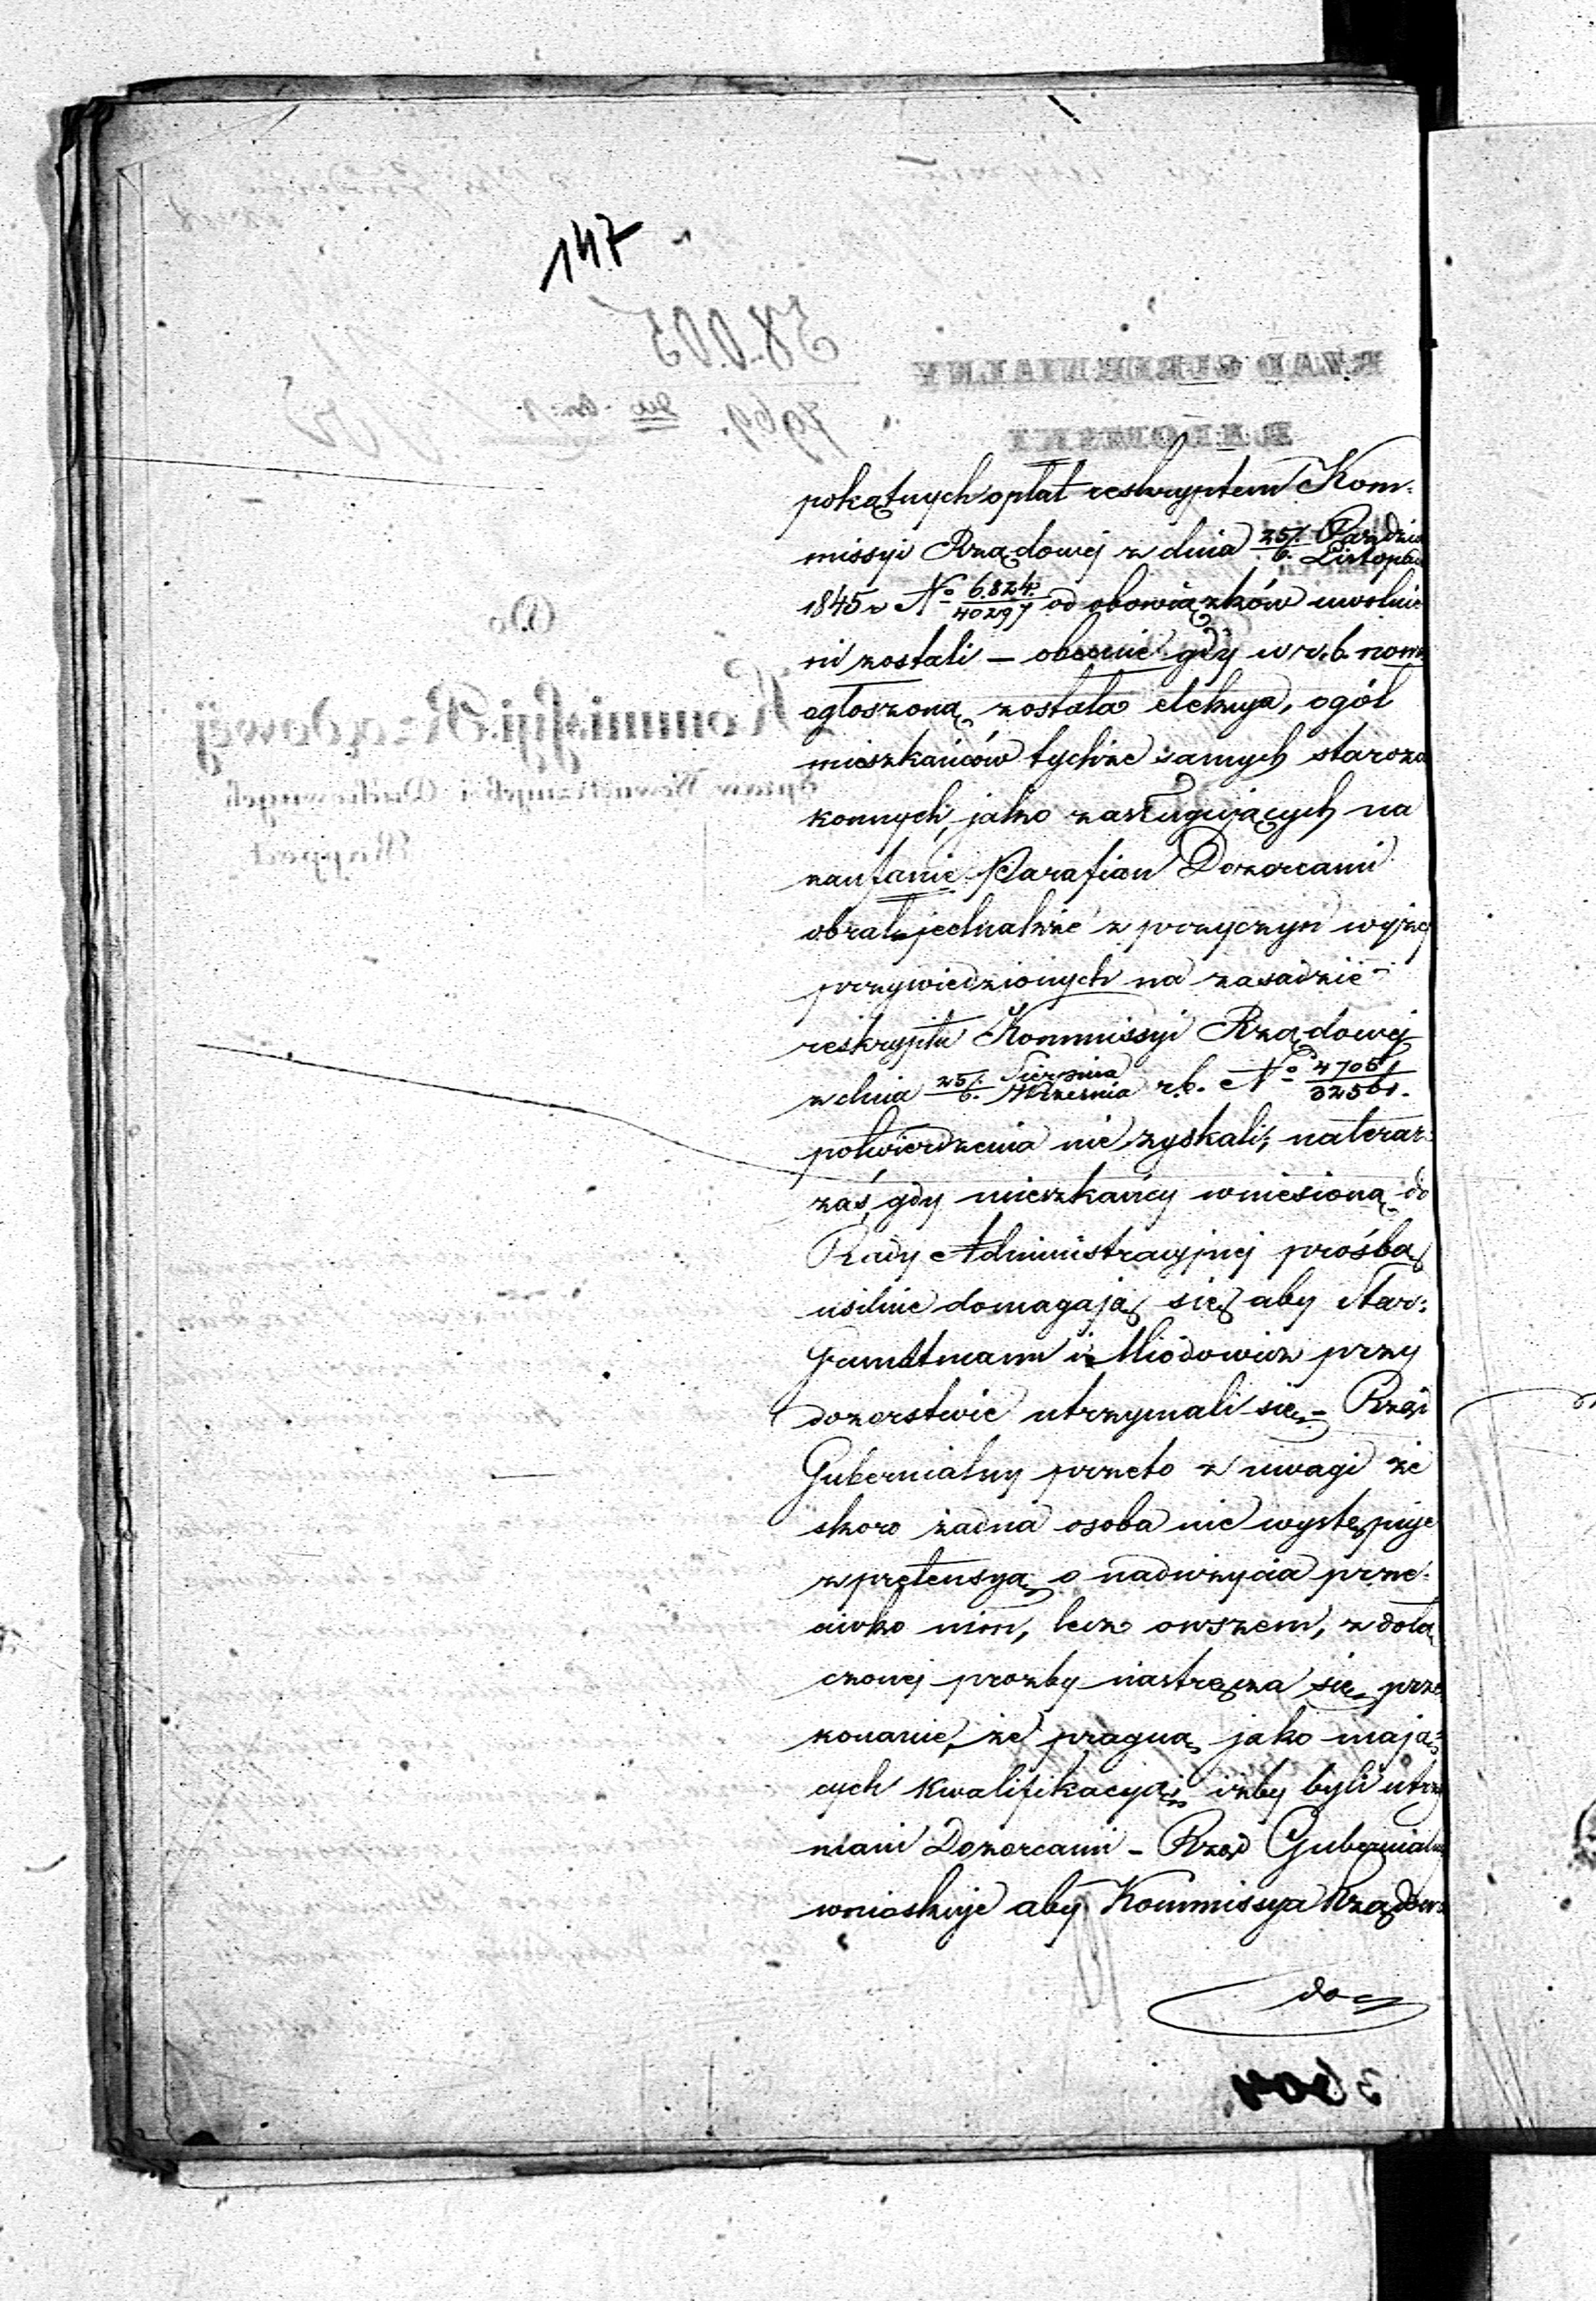 147
pokątnych opłat reskryptem Kom-
missyi Rządowej z dnia 25/6 Paździe Listopad
1845 r. No 6.824/40297 od obowiązków uwolnie
ni zostali – obecnie gdy w r. b. nowa
ogłoszoną została elekcya, ogół
mieszkańców tychże samych staroza
konnych, jako zasługujących na
zaufanie Parafian Dozorcami
obrał, jednakże z przyczyn wyżej
przywiedzionych na zasadzie
reskryptu Kommissyi Rządowej
z dnia 25/6 Sierpnia Września r. b. No 4705/32561.
potwierdzenia nie zyskali; nateraz
zaś, gdy mieszkańcy wniesioną do
Rady Administracyjnej prośbą
usilnie domagają się aby Star:
i Miodowicz przy
dozorstwie utrzymali się – Rząd
Gubernialny przeto z uwagi że
skoro żadna osoba nie występuje
z pretensyą o nadużycia prze-
ciwko nim, lecz owszem, z dołą
czonej prozby nastręcza się prze
konanie, że pragną jako mają-
cych kwalifikacyą, iżby byli utrzy
mani Dozorcami – Rząd Gubernialny
wnioskuje aby Kommissya Rządowa
do